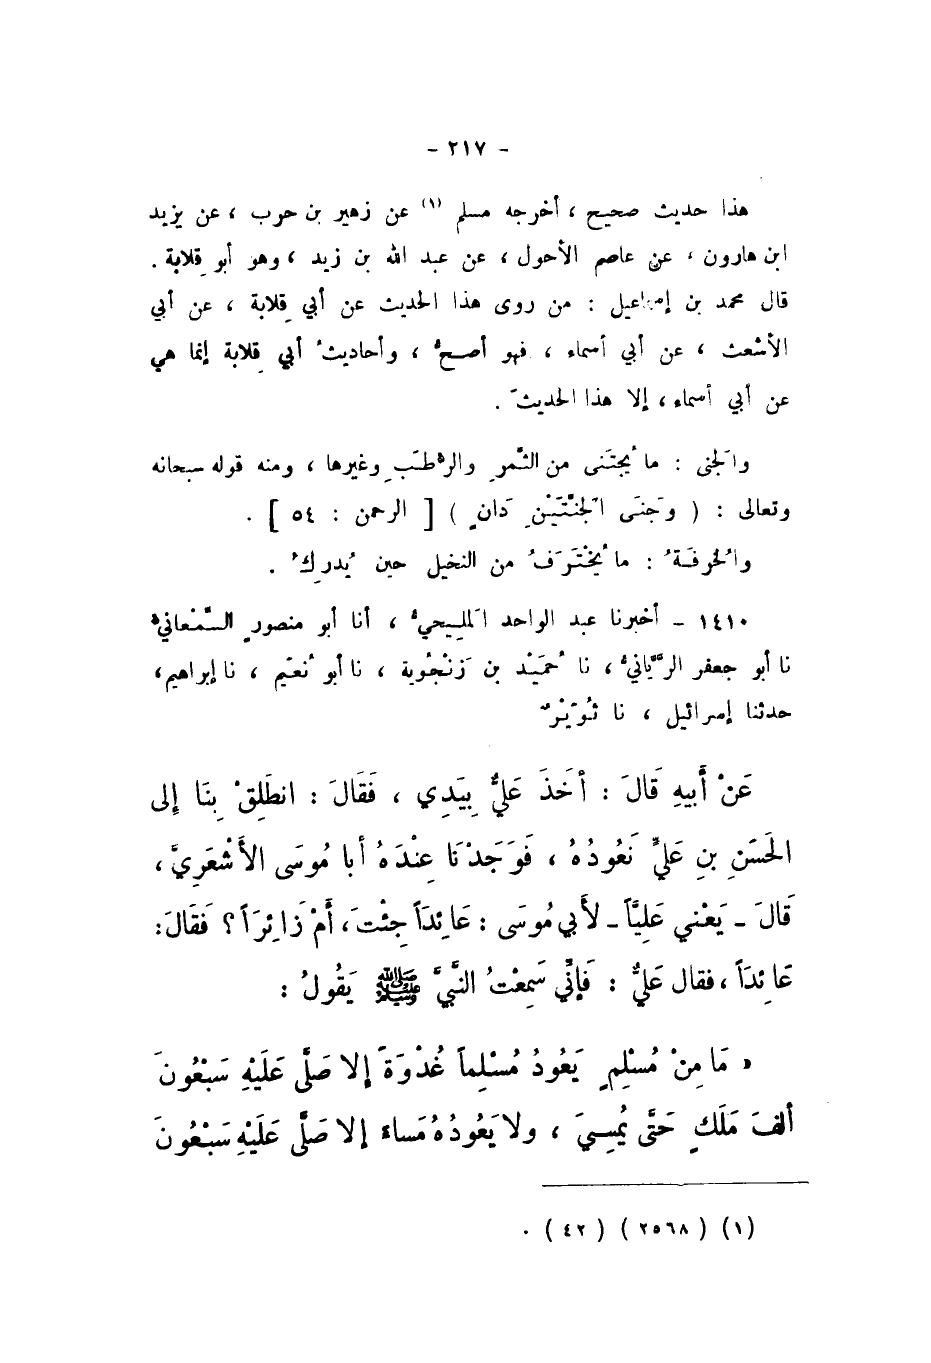 - ٢١٧ -
هذا حديث صحيح ، أخرجه مسلم (١) عن زهير بن حرب ، عن يزيد
ابن هارون ، عن عاصم الأحول ، عن عبد الله بن زيد ، وهو أبو قِلابة .
قال محمد بن إسماعيل : من روى هذا الحديث عن أبي قِلابة ، عن أبي
الأشعث ، عن أبي أسماء ، فهو أصحُّ ، وأحاديثُ أبي قِلابة إنما هي
عن أبي أسماء ، إلا هذا الحديثَ .
والَجنى : ما يُجتَنى من الثَّمرِ والرُّطَبِ وغيرها ، ومنه قوله سبحانه
وتعالى : ( وَجَنَى الْجَنَّتَيْنِ دَانٍ ) [ الرحمن : ٥٤ ] .
والُخرفَةُ : ما يُخْتَرَفُ من النخيل حين يُدرِكُ .
١٤١٠ ـ أخبرنا عبد الواحد المَليحيُّ ، أنا أبو منصورٍ السَّمْعانيُّ
نا أبو جعفر الرَّيّانيُّ ، نا حُمَيْد بن زَنْجُوية ، نا أبو نُعَيم ، نا إبراهيم،
حدثنا إسرائيل ، نا ثُوَيْرٌ
عَنْ أَبيهِ قَالَ : أَخَذَ عَليٌّ بِيَدِي ، فَقَالَ : انطَلِقْ بِنَا إلى
الحَسَنِ بنِ عَليٍّ نَعُودُهُ ، فَوَجَدْنَا عِنْدَهُ أبا مُوسَى الأَشْعَرِيَّ ،
قَالَ ـ يَعْني عَلِيَّاً ـ لأَبي مُوسَى : عَائِدَاً جِئْتَ، أَمْ زَائِرَاً ؟ فَقَالَ:
عَائِدَاً ، فقال عَليٌّ : فَإنِّي سَمِعْتُ النَّبيَّ ﷺ يَقُولُ :
« مَا مِنْ مُسْلِمٍ يَعُودُ مُسْلِماً غُدْوَةً إلا صَلَّى عَلَيْهِ سَبْعُونَ
ألفَ مَلَكٍ حَتَّى يُمسِيَ ، ولا يَعُودُهُ مَساءً إلا صَلَّى عَلَيْهِ سَبْعُونَ
(١) ( ٢٥٦٨ ) ( ٤٢ ) .